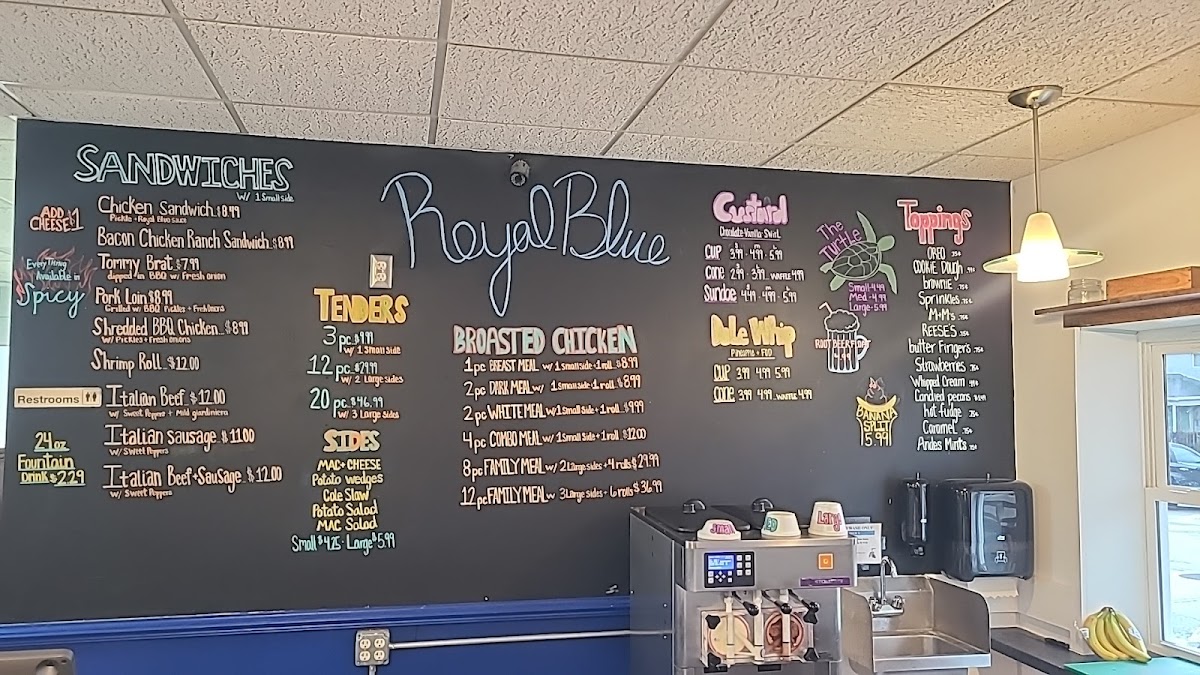 SANDWICHES
w/ 1 Small side
ADD
CHEESE $1
Chicken Sandwich $8.99
Pickle + Royal Blue sauce
Bacon Chicken Ranch Sandwich $8.99
Everything
Available in
Spicy
Tommy Brat $7.99
dipped in BBQ w/ Fresh onion
Pork Loin $8.99
Grilled w/ BBQ Pickles + Fresh onions
Shredded BBQ Chicken $8.99
w/ Pickles + Fresh onions
Shrimp Roll $12.00
Restrooms
Italian Beef $12.00
w/ Sweet Peppers + Mild giardiniera
Italian Sausage $11.00
w/ Sweet Peppers
Italian Beef + Sausage $12.00
w/ Sweet Peppers
24oz
Fountain
Drink $2.29
Royal Blue
TENDERS
3 pc. $9.99
w/ 1 Small side
12 pc. $29.99
w/ 2 Large sides
20 pc. $46.99
w/ 3 Large sides
SIDES
MAC + CHEESE
Potato wedges
Cole Slaw
Potato Salad
MAC Salad
Small $4.25 · Large $5.99
BROASTED CHICKEN
1 pc BREAST MEAL w/ 1 small side · 1 roll $8.99
2 pc DARK MEAL w/ 1 small side · 1 roll $8.99
2 pc WHITE MEAL w/ 1 Small side + 1 roll $9.99
4 pc COMBO MEAL w/ 1 Small side + 1 roll $12.00
8 pc FAMILY MEAL w/ 2 Large sides + 4 rolls $29.99
12 pc FAMILY MEAL w/ 3 Large sides + 6 rolls $36.99
Custard
Chocolate Vanilla Swirl
CUP 3.99 4.99 5.99
Cone 2.99 3.99 WAFFLE 4.99
Sundae 4.49 4.99 5.99
Dole Whip
CUP 3.99 4.99 5.99
Cone 3.99 4.99 WAFFLE 4.99
The
Turtle
Small-4.49
Med-4.99
Large-5.99
ROOT BEER FLOAT
BANANA
SPLIT
5.99
Toppings
OREO .75¢
COOKIE Dough .99¢
brownie .75¢
Sprinkles .75¢
M+M's .75¢
REESE'S .75¢
butter Fingers .75¢
Strawberries .75¢
Whipped Cream
Candied pecans
hot fudge .75¢
Caramel .75¢
Andes Mints .75¢
Small
Large